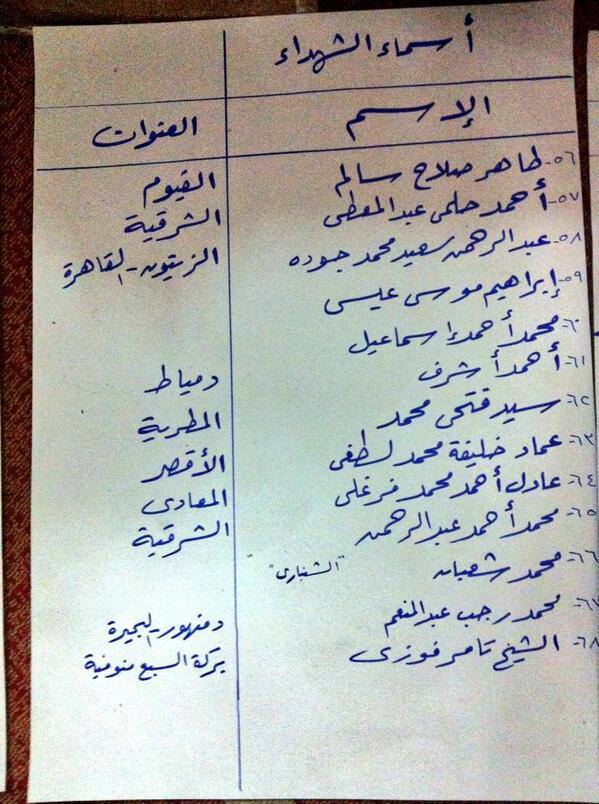 أسماء الشهداء
الإسم العنوان
٥٦- طاهر صلاح سالم الفيوم
٥٧- أحمد حلمى عبد المعطى الشرقية
٥٨- عبد الرحمن سعيد محمد جوده الزيتون - القاهرة
٥٩- إبراهيم موسى عيسى
٦٠- محمد أحمد إسماعيل
٦١- أحمد أشرف دمياط
٦٢- سيد فتحى محمد المطرية
٦٣- عماد خليفة محمد لطفى الأقصر
٦٤- عادل أحمد محمد فرغلى المعادى
٦٥- محمد أحمد عبد الرحمن الشرقية
٦٦- محمد شعبان
٦٧- محمد رجب عبد المنعم دمنهور - البحيرة
٦٨- الشيخ تامر فوزى بركة السبع منوفية